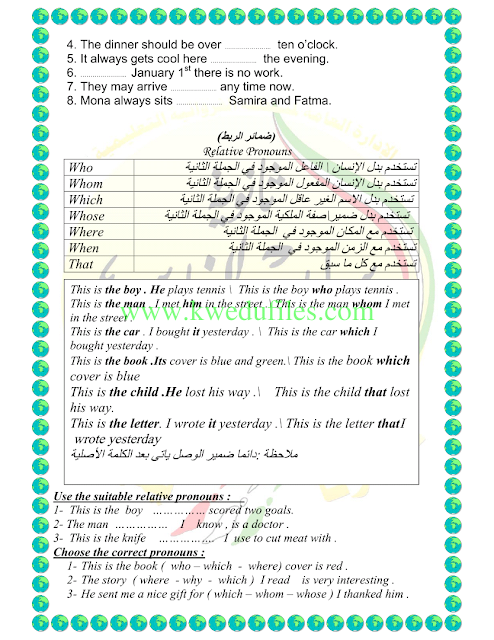 4. The dinner should be over .................... ten o'clock.
5. It always gets cool here .................... the evening.
6. .................... January 1st there is no work.
7. They may arrive .................... any time now.
8. Mona always sits .................... Samira and Fatma.
(ضمائر الربط)
Relative Pronouns
Who تستخدم بدل الإنسان \ الفاعل الموجود في الجملة الثانية
Whom تستخدم بدل الإنسان المفعول الموجود في الجملة الثانية
Which تستخدم بدل الاسم الغير عاقل الموجود في الجملة الثانية
Whose تستخدم بدل ضمير\صفة الملكية الموجود في الجملة الثانية
Where تستخدم مع المكان الموجود في الجملة الثانية
When تستخدم مع الزمن الموجود في الجملة الثانية
That تستخدم مع كل ما سبق
This is the boy . He plays tennis \ This is the boy who plays tennis .
This is the man . I met him in the street .\ This is the man whom I met
in the street .
www.kwedufiles.com
This is the car . I bought it yesterday . \ This is the car which I
bought yesterday .
This is the book .Its cover is blue and green.\ This is the book which
cover is blue
This is the child .He lost his way .\ This is the child that lost
his way.
This is the letter. I wrote it yesterday .\ This is the letter thatI
wrote yesterday
ملاحظة :دائما ضمير الوصل يأتى بعد الكلمة الأصلية
Use the suitable relative pronouns :
1- This is the boy …………… scored two goals.
2- The man …………… I know , is a doctor .
3- This is the knife …………… I use to cut meat with .
Choose the correct pronouns :
1- This is the book ( who – which - where) cover is red .
2- The story ( where - why - which ) I read is very interesting .
3- He sent me a nice gift for ( which – whom – whose ) I thanked him .